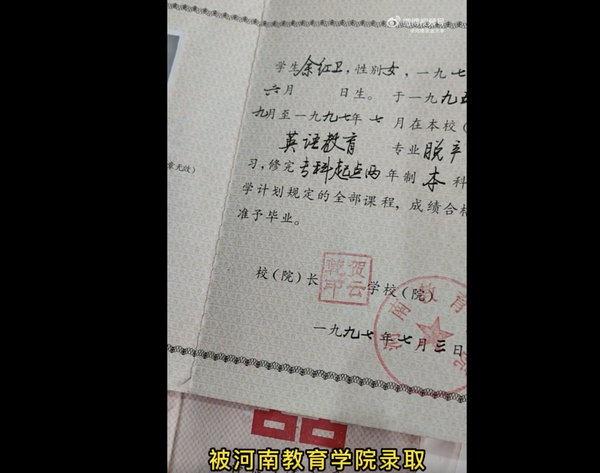 学生余红卫，性别女，一九七
六月 日生。于一九九五
九月至一九九七年七月在本校（
英语教育 专业脱产
习，修完专科起点两年制本科
学计划规定的全部课程，成绩合格
准予毕业。
章无效）
校（院）长
贺云
学校（院）
河南教育
一九九七年七月三日
囍
被河南教育学院录取